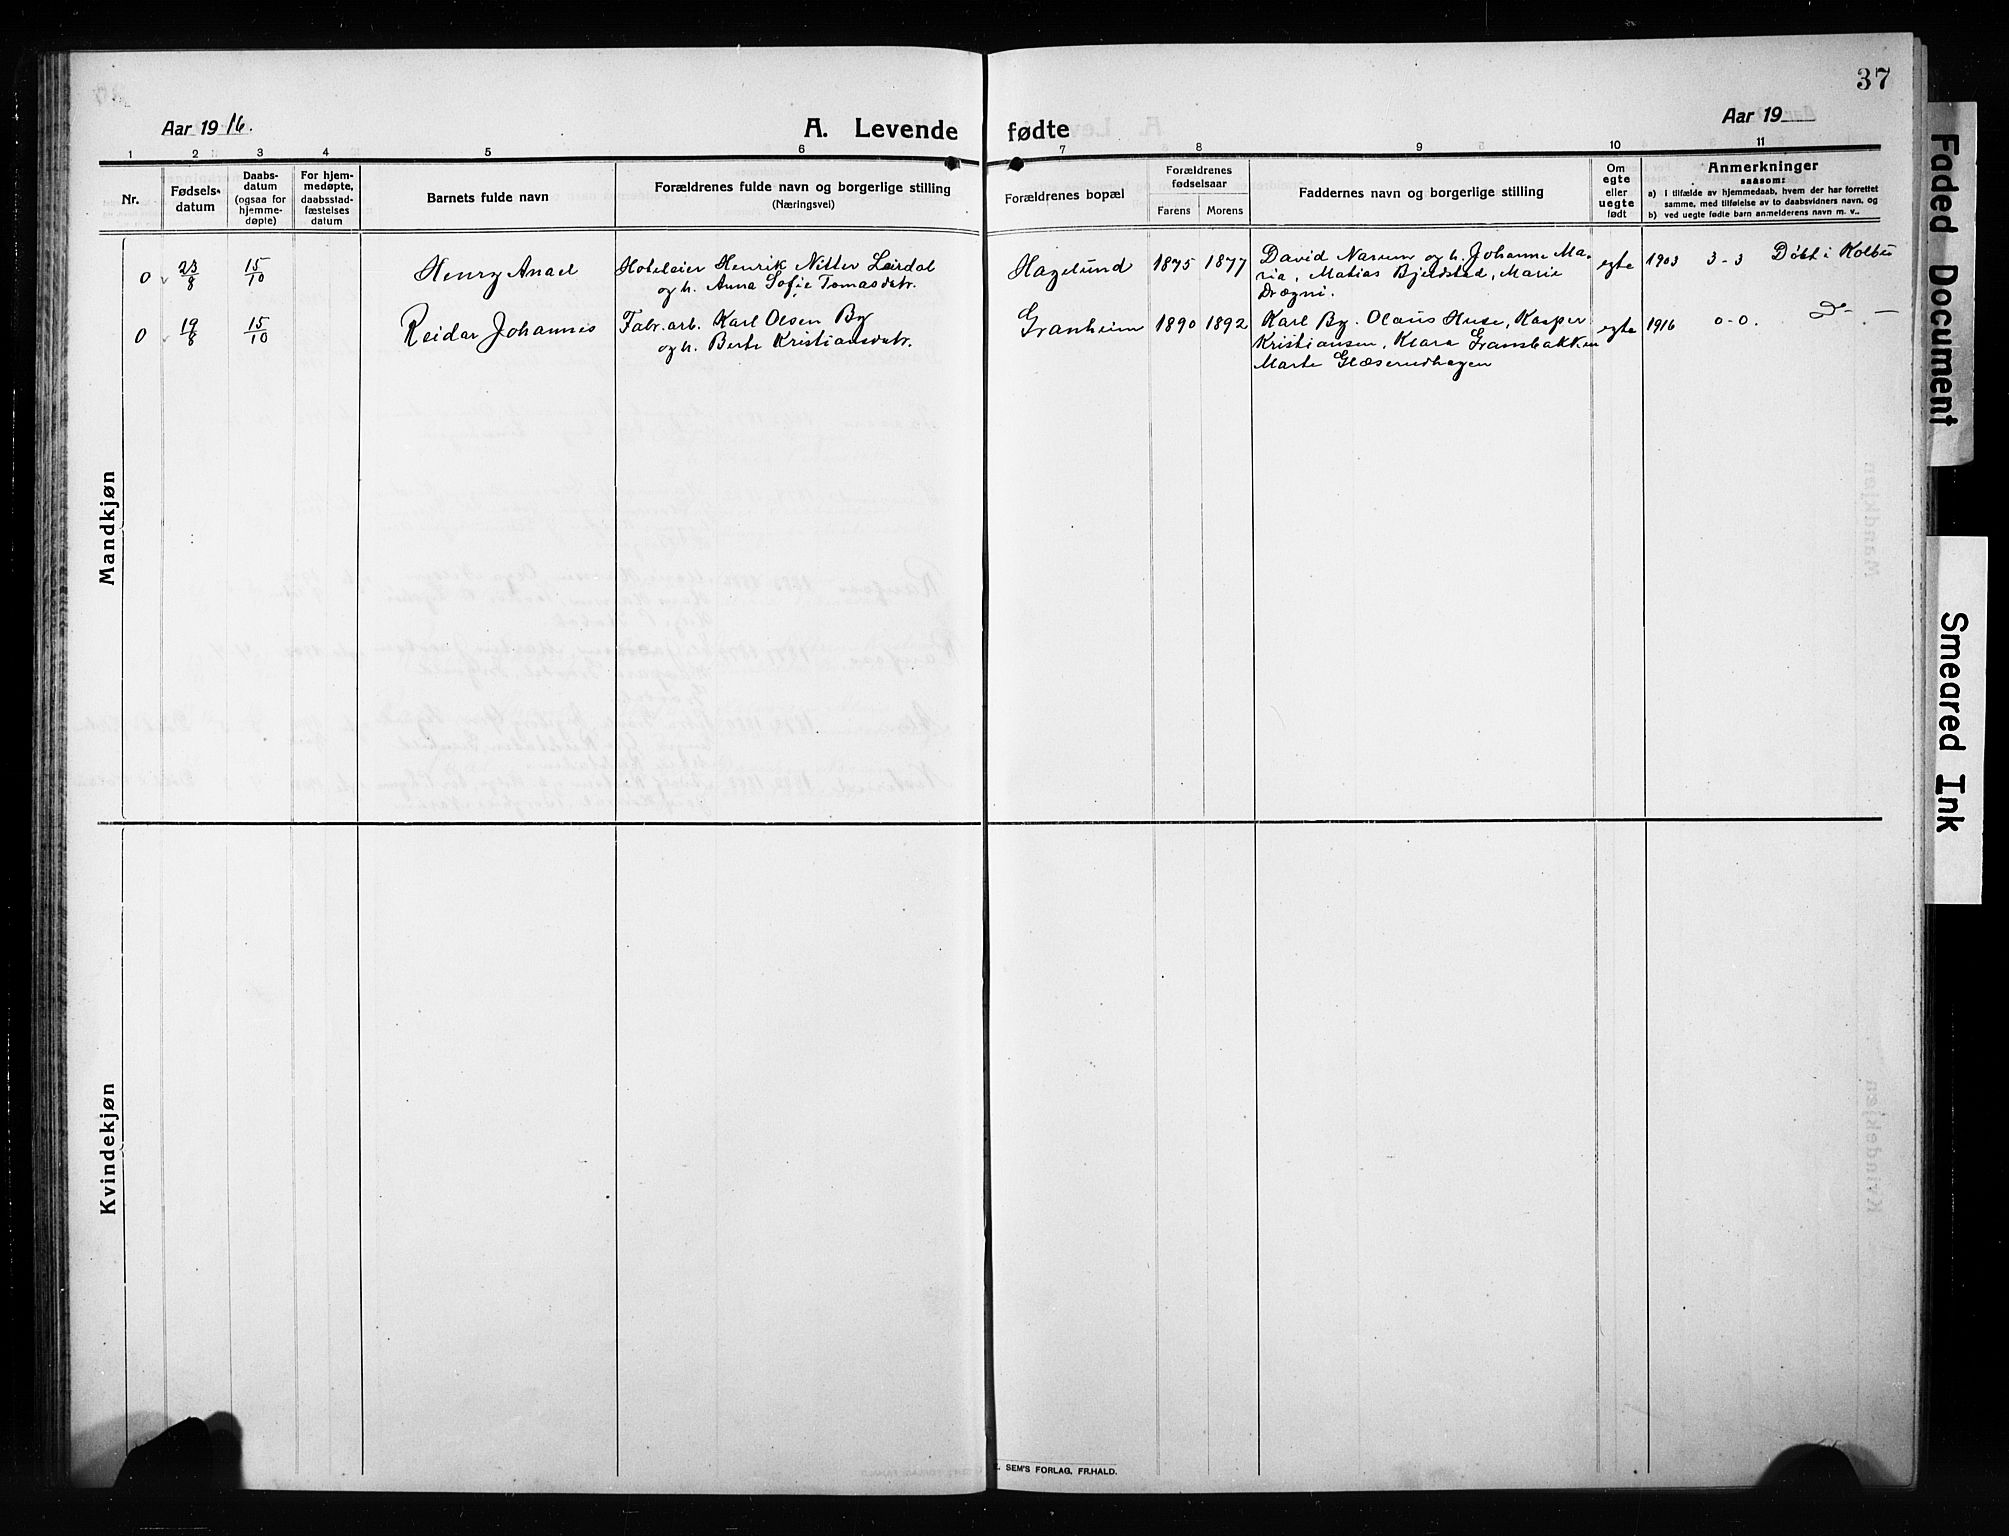 37
Aar 1916.
A. Levende fødte
Aar 19
1 2 3 4 5 6 7 8 9 10 11
Nr.
Fødsels-
datum
Daabs-
datum
(ogsaa for
hjemme-
døpte)
For hjem-
medøpte,
daabsstad-
fæstelses
datum
Barnets fulde navn
Forældrenes fulde navn og borgerlige stilling
(Næringsvei)
Forældrenes bopæl
Forældrenes
fødselsaar
Farens Morens
Faddernes navn og borgerlige stilling
Om
egte
eller
uegte
født
Anmerkninger
saasom:
a) I tilfælde av hjemmedaab, hvem der har forrettet
samme, med tilføielse av to daabsvidners navn, og
b) ved uegte fødte barn anmelderens navn m. v..
Mandkjøn
0 23/8 15/10 Henry Anael Hoteleier Henrik Nitter Leirdal Hagelund 1875 1877 David Narum og h. Johanne Ma- egte 1903 3-3 Döbt i Kolbu
og h. Anna Sofie Tomasdatr. ria, Matias Bjerdsted, Marie
Drægni.
0 19/8 15/10 Reidar Johannes Fabr. arb. Karl Olsen By Granheim 1890 1892 Karl By. Olaus Huse, Kasper egte 1916 0-0. Do - -
og h. Berte Kristiansdatr. Kristiansen, Klara Gransbakken
Marte Glæserudhagen
Kvindekjøn
SEM'S FORLAG, FR.HALD.
Faded Document
Smeared Ink